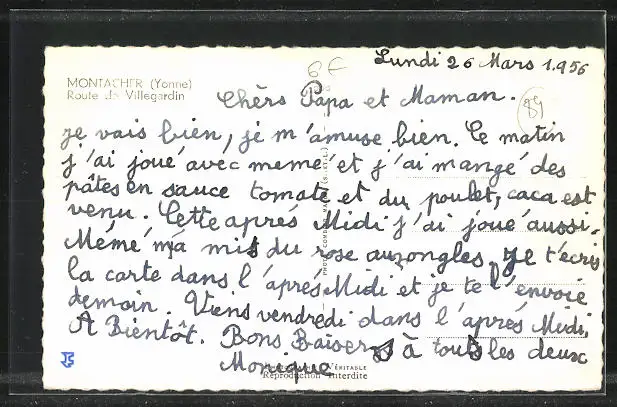 Lundi 26 Mars 1956
6 €
MONTACHER (Yonne)
Route de Villegardin
Chèrs Papa et Maman.
89
je vais bien, je m'amuse bien. Ce matin
j'ai joué avec memé et j'ai mangé des
pâtes en sauce tomate et du poulet, caca est
venu. Cette aprés Midi j'ai joué aussi.
Mémé m'a mis du rose aux ongles. Je t'écris
la carte dans l'aprés Midi et je te l'envoie
demain. Viens vendredi dans l'aprés Midi.
A Bientôt. Bons Baisers à tous les deux
Monique
VÉRITABLE
Reproduction Interdite